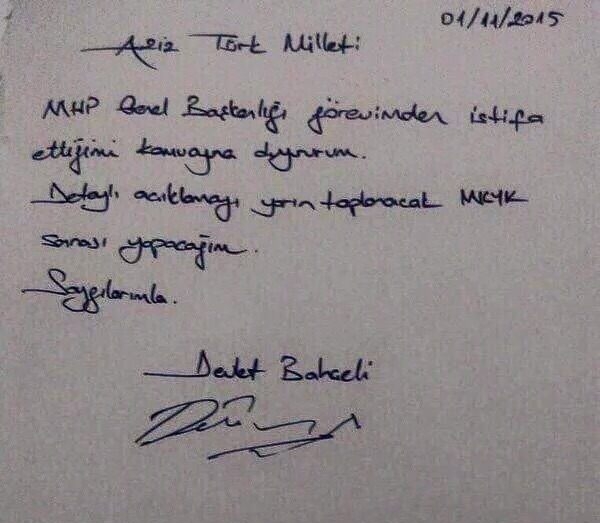 01/11/2015
Aziz Türk Milleti
MHP Genel Başkanlığı görevimden istifa
ettiğimi kamuoyuna duyururum.
Detaylı açıklamayı yarın toplanacak MKYK
sonrası yapacağım.
Saygılarımla.
Devlet Bahceli